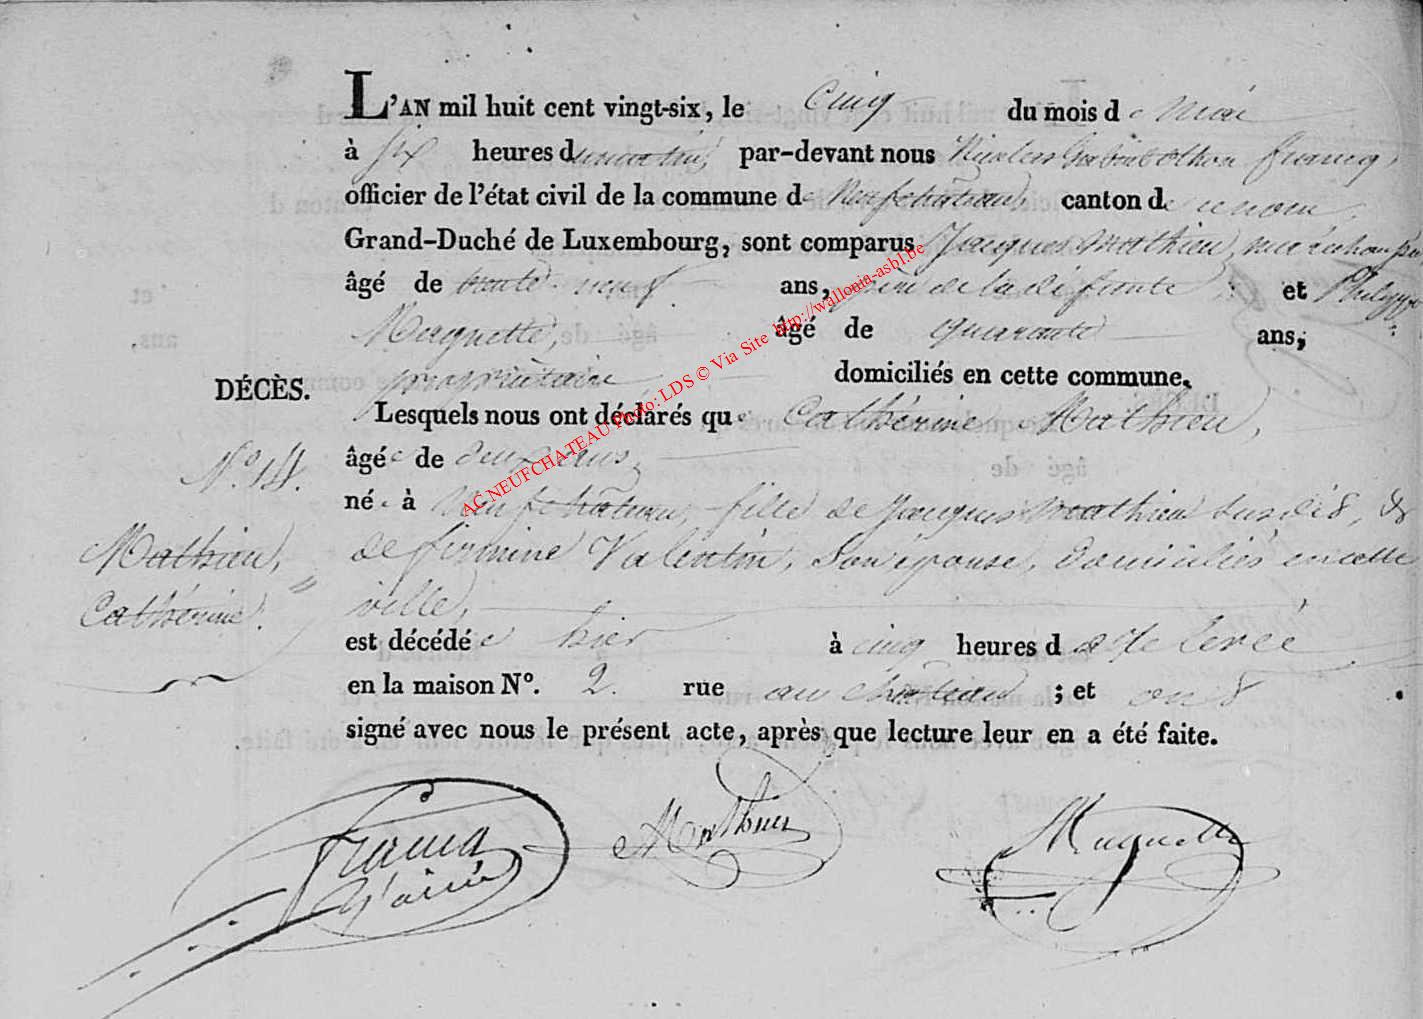 L'AN mil huit cent vingt-six, le Cinq du mois de Mai
à six heures du matin, par-devant nous Nicolas francq,
officier de l'état civil de la commune de Neufchâteau, canton de ce nom.
Grand-Duché de Luxembourg, sont comparus Jacques Mathieu,
âgé de trente-neuf ans, père de la défunte et Philippe
Muquette, âgé de quarante ans;
propriétaire domiciliés en cette commune.
DÉCÈS.
Lesquels nous ont déclarés que Cathérine Mathieu,
âgée de deux ans,
N.º 14.
née à Neufchâteau, fille de Jacques Mathieu susdit, &
Mathieu,
Cathérine.
de firmine Valentin, son épouse, domiciliés en cette
ville,
est décédée hier à cinq heures de relevée
en la maison Nº. 2. rue au château ; et ont
signé avec nous le présent acte, après que lecture leur en a été faite.
francq
Mathieu
Muquette
AC NEUFCHATEAU Photo: LDS © Via Site http://wallonia-asbl.be